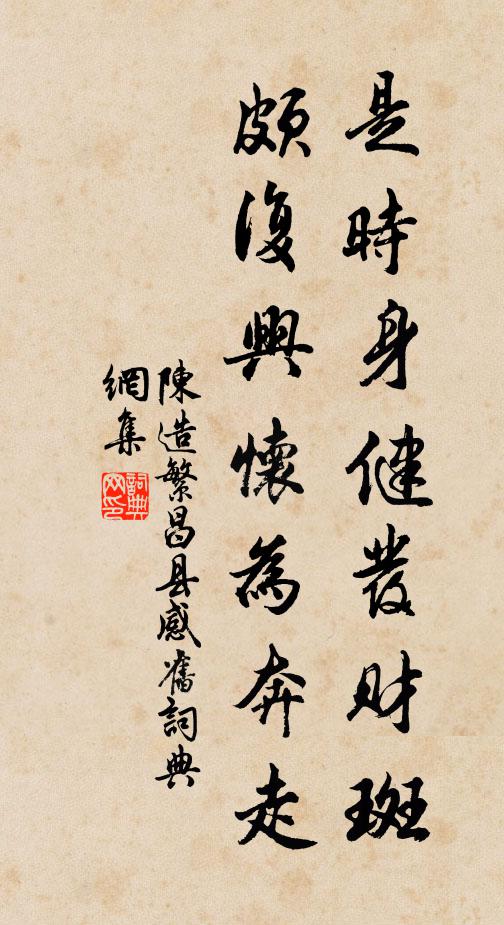 是時身健發財斑
頗復興懷為奔走
陳造繁昌县感舊詞典
網集
詞典
网印